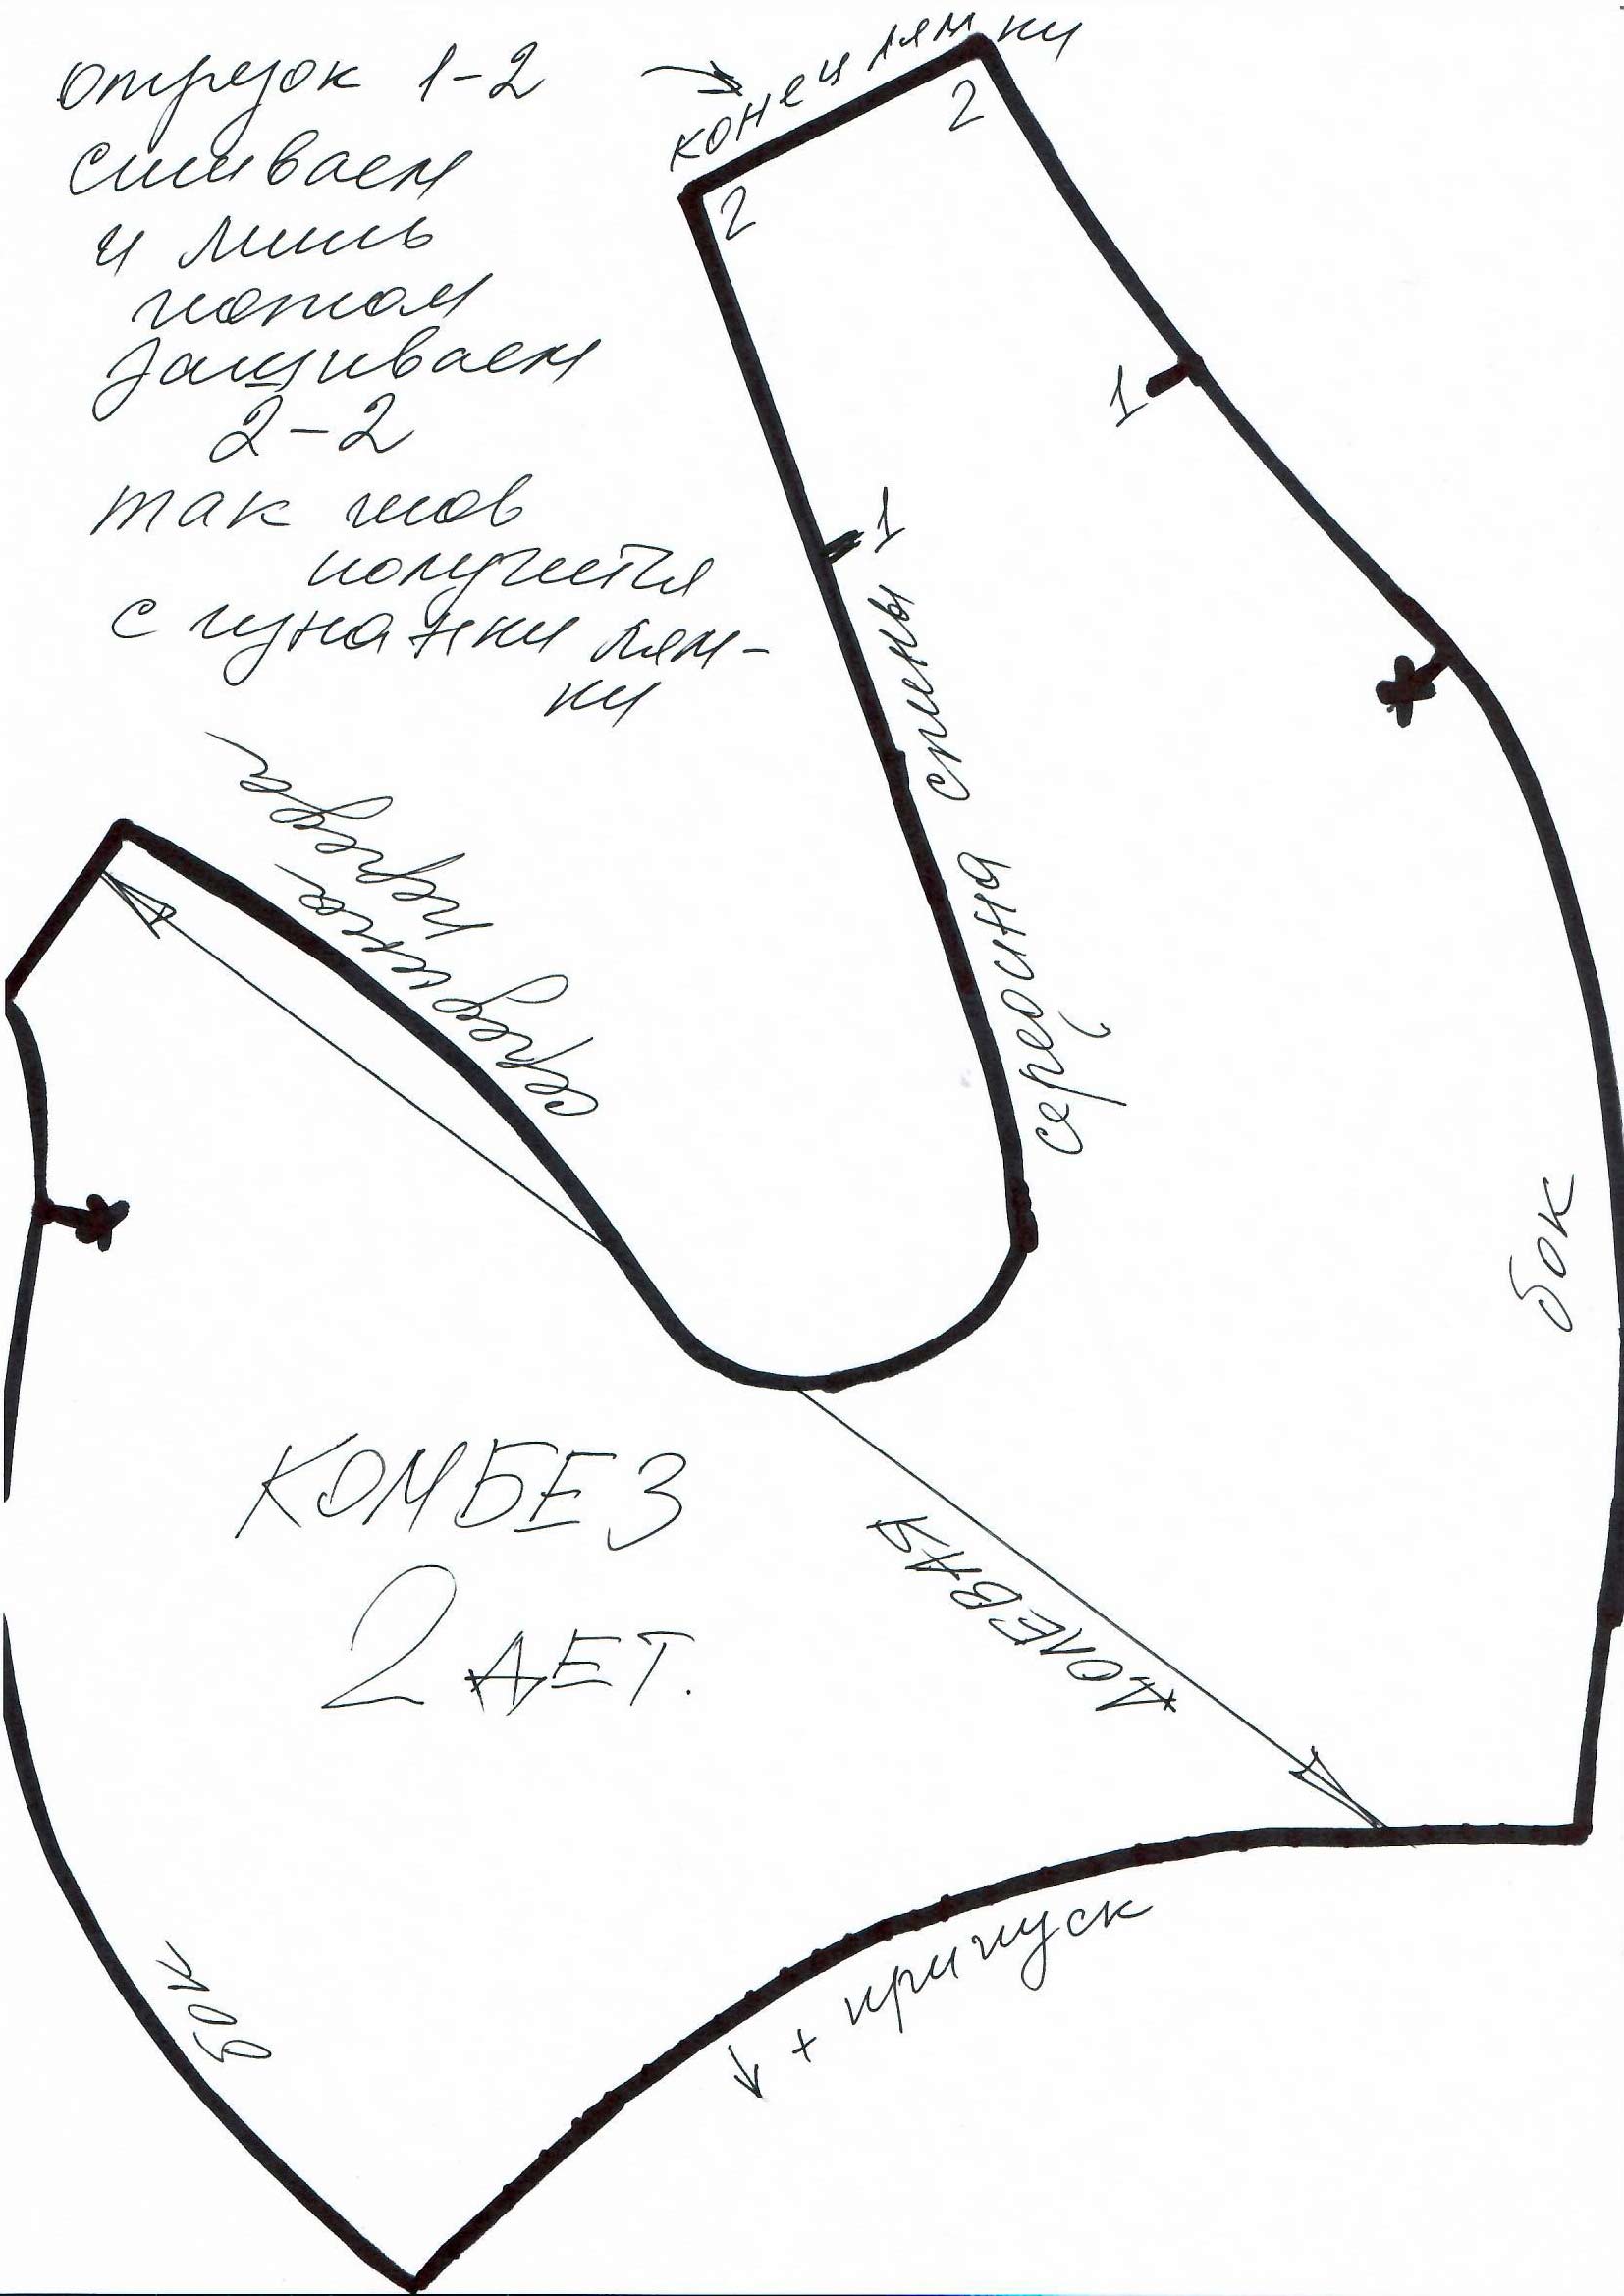 отрезок 1-2
сшиваем
и лишь
потом
зашиваем
2-2
так шов
получится
с изнанки лям-
ки
конец лямки
2
2
1
1
середина спины
середина
переда
бок
КОМБЕЗ
2 ДЕТ.
ДОЛЕВАЯ
+ припуск
бок